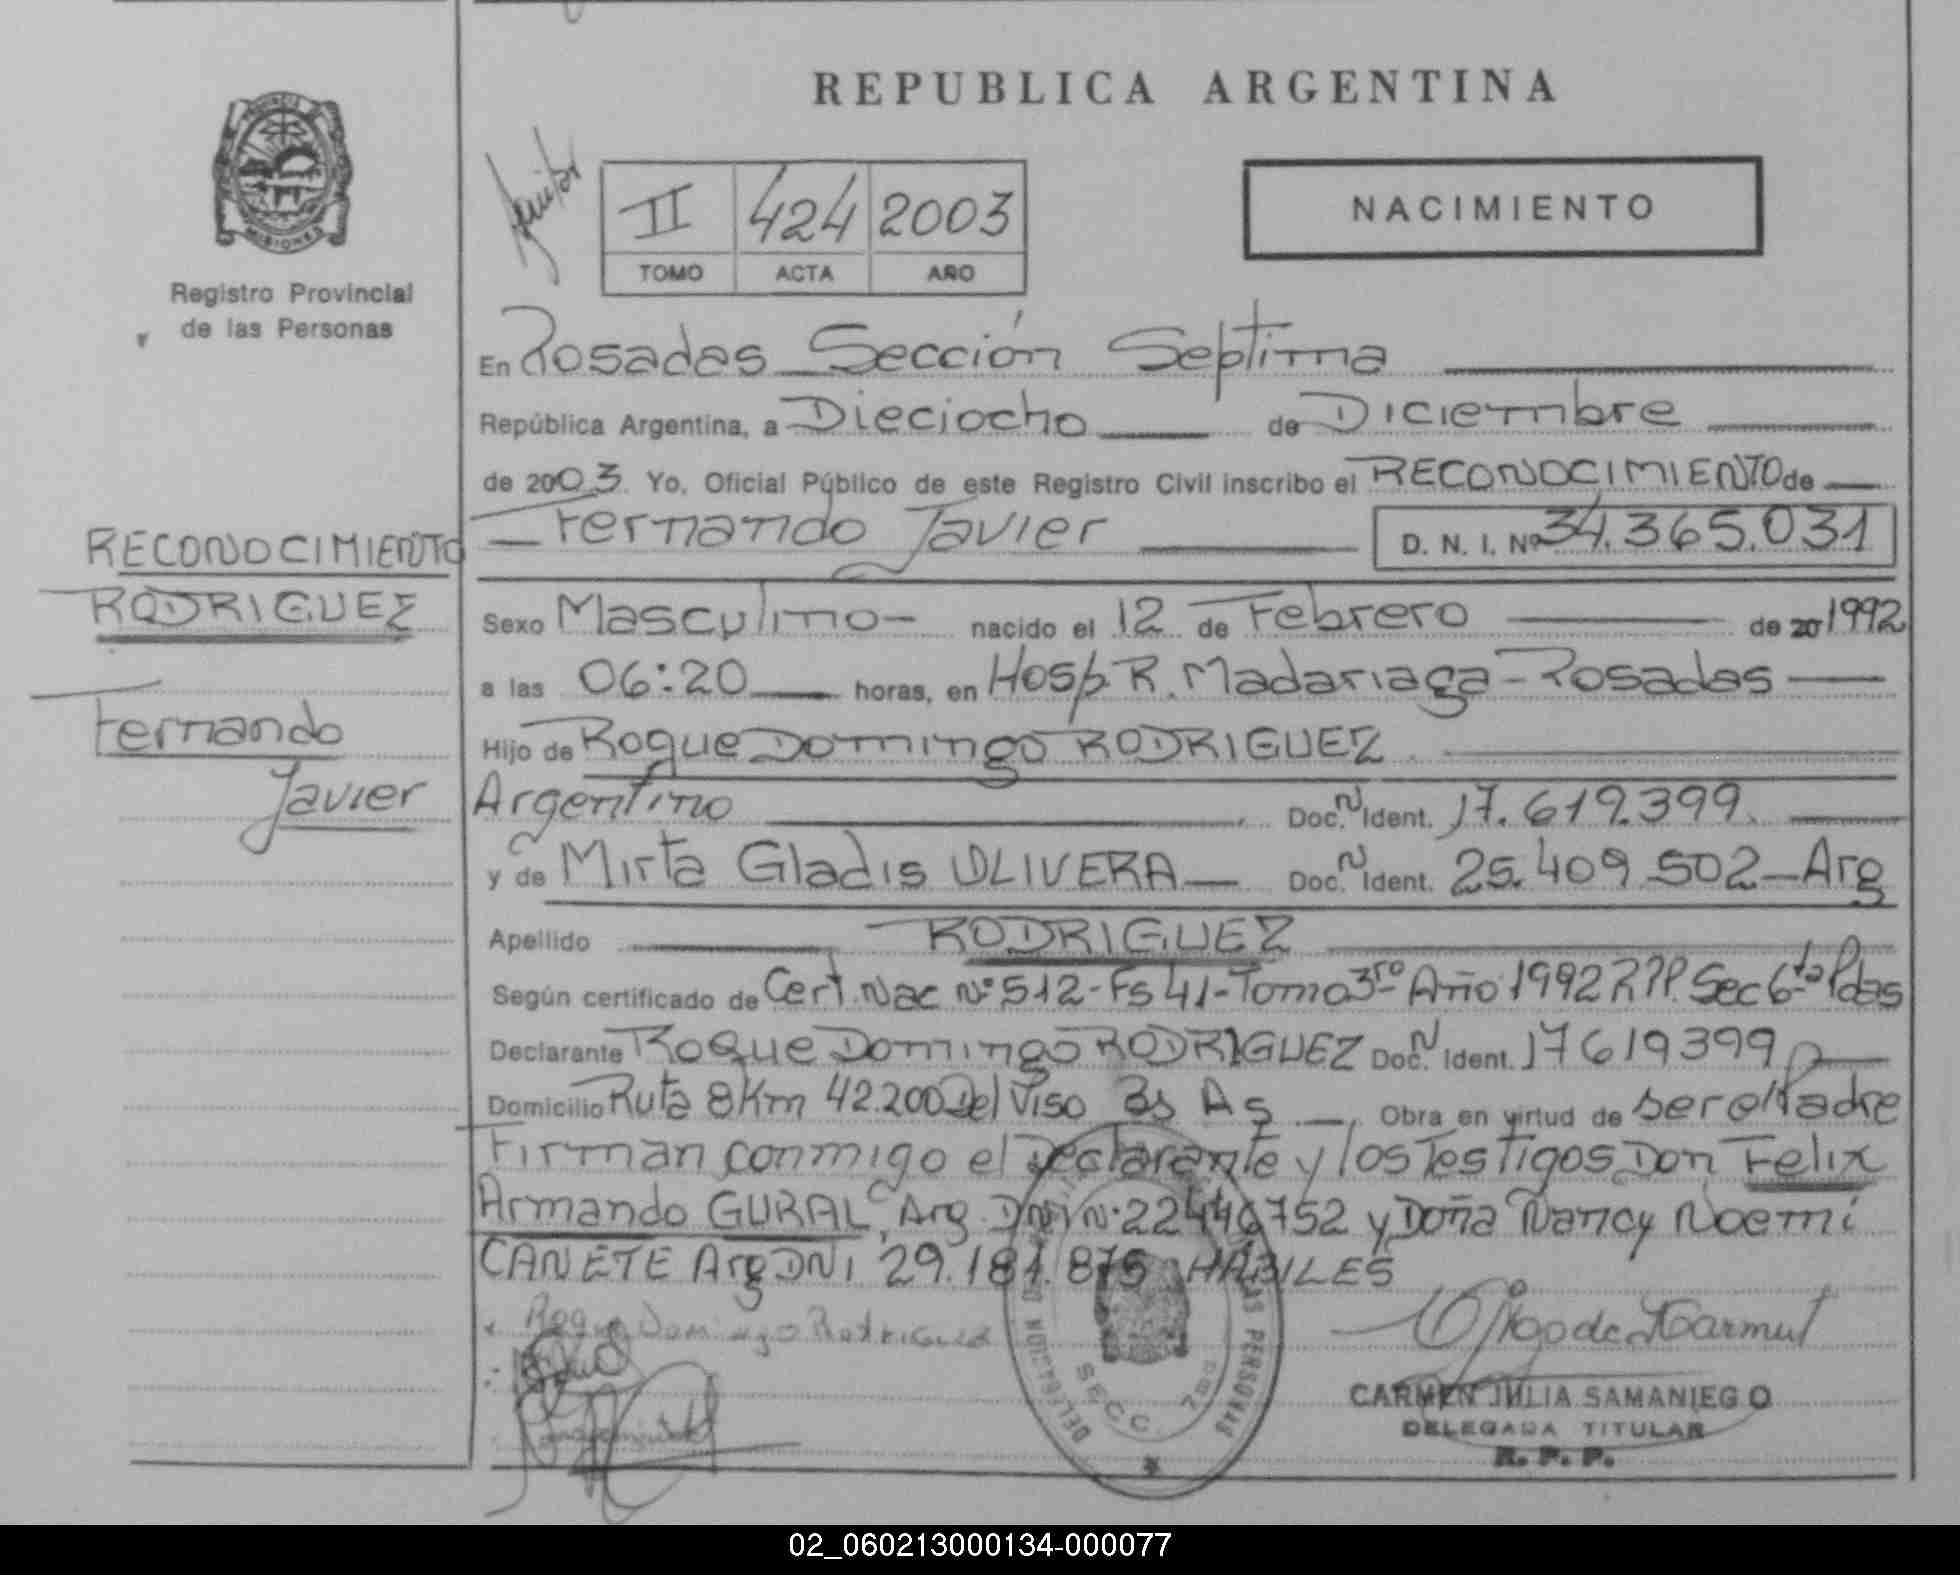 REPUBLICA ARGENTINA
MISIONES
Registro Provincial
de las Personas
II 424 2003
TOMO ACTA AÑO
NACIMIENTO
En Posadas Sección Septima
República Argentina, a Dieciocho de Diciembre
de 2003 Yo, Oficial Público de este Registro Civil inscribo el RECONOCIMIENTO de
Fernando Javier D. N. I. Nº 34.365.031
RECONOCIMIENTO
RODRIGUEZ
Fernando
Javier
Sexo Masculino nacido el 12 de Febrero de 20 1992
a las 06:20 horas, en Hosp. R. Madariaga - Posadas
Hijo de Roque Domingo RODRIGUEZ
Argentino Doc. N Ident. 17.619.399
y de Mirta Gladis OLIVERA Doc. N Ident. 25.409.502 - Arg
Apellido RODRIGUEZ
Según certificado de Cert. Nac Nº 512 - Fs 41 - Tomo 3ro Año 1992 R.P.P. Sec 6ta Pdas
Declarante Roque Domingo RODRIGUEZ Doc. N Ident. 17619399
Domicilio Ruta 8 Km 42.200 Del Viso Bs As Obra en virtud de ser el Padre
Firman conmigo el Declarante y los Testigos Don Felix
Armando GURAL, Arg. DNI Nº 22446752 y Doña Nancy Noemi
CANETE Arg DNI 29.181.875 HABILES
Roque Domingo Rodriguez
DELEGACION
LAS PERSONAS
SECC. 7ma
CARMEN JULIA SAMANIEGO
DELEGADA TITULAR
R. P. P.
02_060213000134-000077